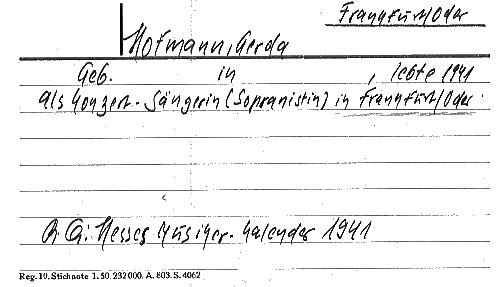 Frankfurt/Oder
Hofmann, Gerda
Geb. in , lebte 1941
als Konzert-Sängerin (Sopranistin) in Frankfurt/Oder.
Qu: Hesses Musiker-Kalender 1941
Reg. 10. Stichnote 1. 50. 232000. A. 803. S. 4062